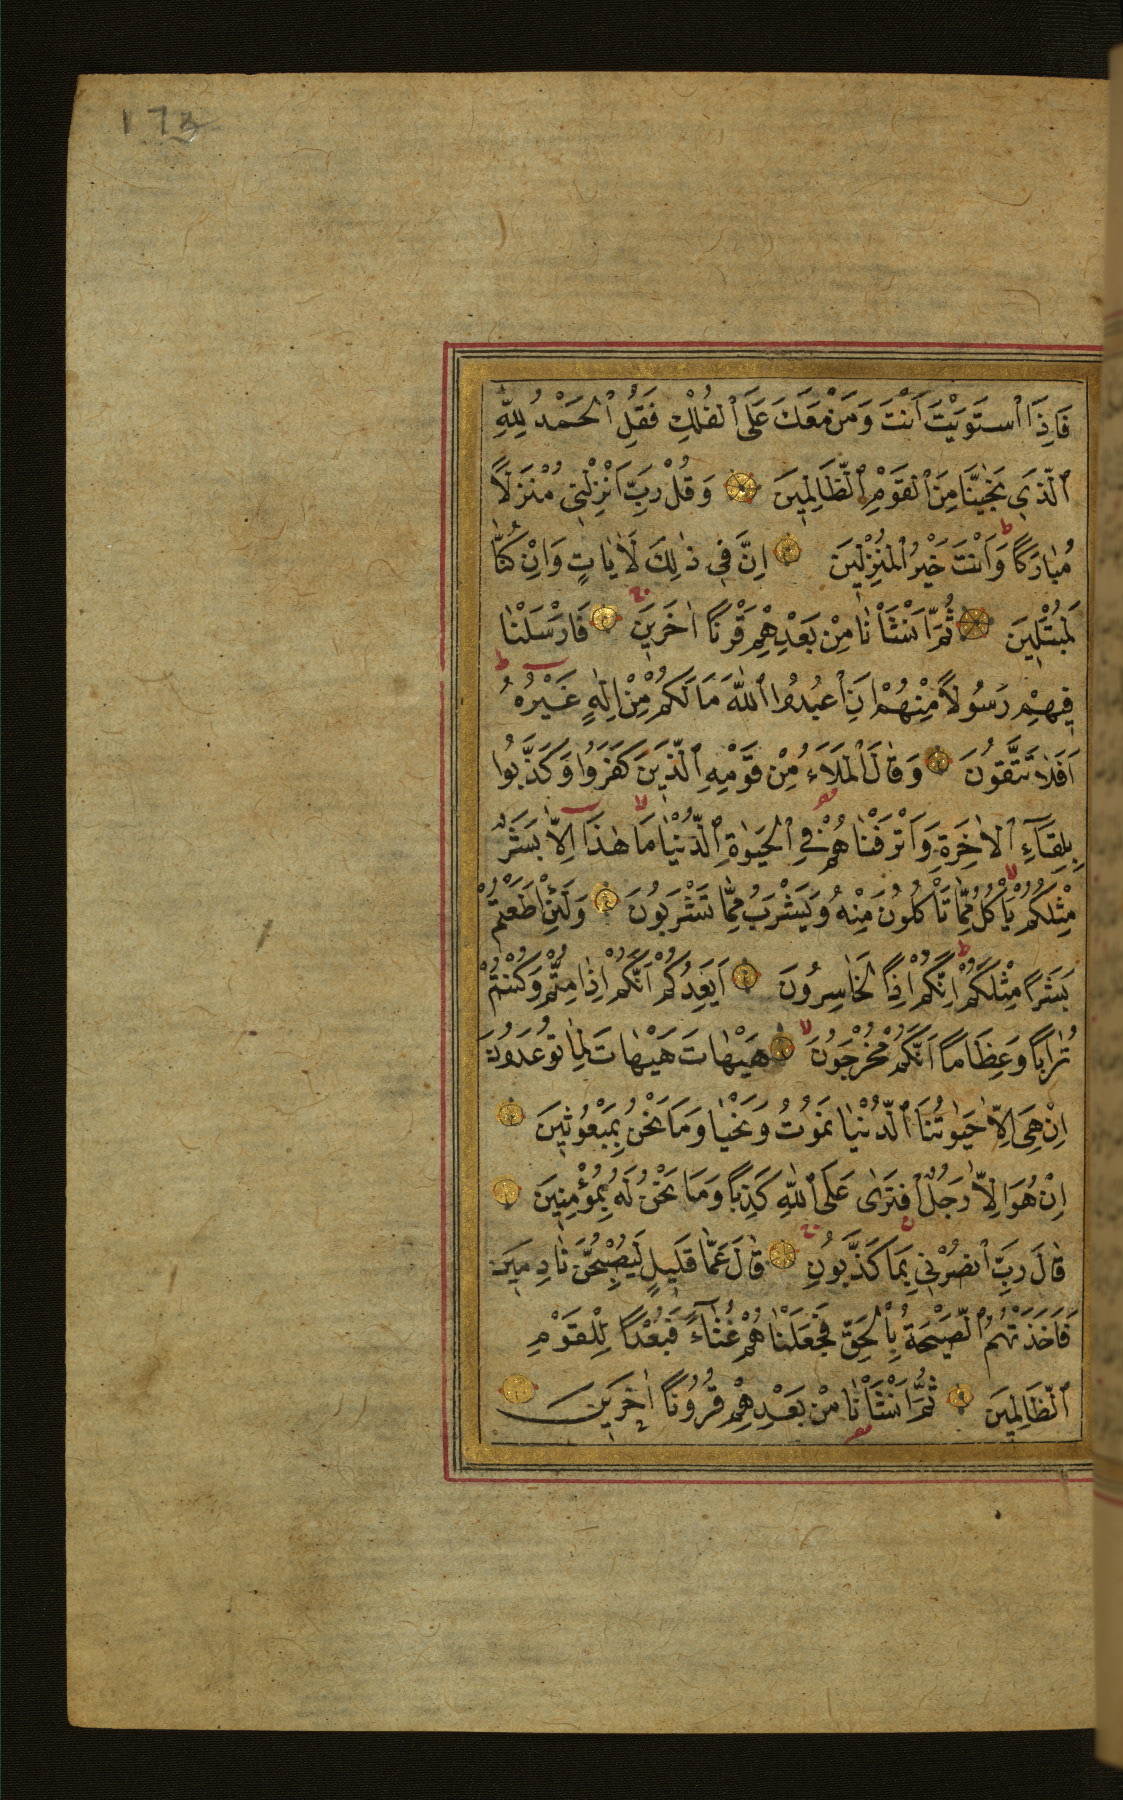 173
فَاِذَا ٱسْتَوَيْتَ اَنْتَ وَمَنْ مَعَكَ عَلَى ٱلْفُلْكِ فَقُلِ ٱلْحَمْدُ لِلّٰهِ
ٱلَّذِي نَجّٰينَا مِنَ ٱلْقَوْمِ ٱلظَّالِمِينَ وَقُلْ رَبِّ اَنْزِلْنِي مُنْزَلًا
مُبَارَكًا وَاَنْتَ خَيْرُ ٱلْمُنْزِلِينَ اِنَّ فِي ذٰلِكَ لَاٰيَاتٍ وَاِنْ كُنَّا
لَمُبْتَلِينَ ثُمَّ اَنْشَأْنَا مِنْ بَعْدِهِمْ قَرْنًا اٰخَرِينَ فَارْسَلْنَا
فِيهِمْ رَسُولًا مِنْهُمْ اَنِ ٱعْبُدُوا ٱللّٰهَ مَا لَكُمْ مِنْ اِلٰهٍ غَيْرُهُ
اَفَلَا تَتَّقُونَ وَقَالَ ٱلْمَلَاءُ مِنْ قَوْمِهِ ٱلَّذِينَ كَفَرُوا وَكَذَّبُوا
بِلِقَآءِ ٱلْاٰخِرَةِ وَاَتْرَفْنَاهُمْ فِي ٱلْحَيٰوةِ ٱلدُّنْيَا مَا هٰذَا اِلَّا بَشَرٌ
مِثْلُكُمْ يَأْكُلُ مِمَّا تَأْكُلُونَ مِنْهُ وَيَشْرَبُ مِمَّا تَشْرَبُونَ وَلَئِنْ اَطَعْتُمْ
بَشَرًا مِثْلَكُمْ اِنَّكُمْ اِذًا لَخَاسِرُونَ اَيَعِدُكُمْ اَنَّكُمْ اِذَا مِتُّمْ وَكُنْتُمْ
تُرَابًا وَعِظَامًا اَنَّكُمْ مُخْرَجُونَ هَيْهَاتَ هَيْهَاتَ لِمَا تُوعَدُونَ
اِنْ هِيَ اِلَّا حَيٰوتُنَا ٱلدُّنْيَا نَمُوتُ وَنَحْيَا وَمَا نَحْنُ بِمَبْعُوثِينَ
اِنْ هُوَ اِلَّا رَجُلٌ ٱفْتَرٰى عَلَى ٱللّٰهِ كَذِبًا وَمَا نَحْنُ لَهُ بِمُؤْمِنِينَ
قَالَ رَبِّ ٱنْصُرْنِي بِمَا كَذَّبُونِ قَالَ عَمَّا قَلِيلٍ لَيُصْبِحُنَّ نَادِمِينَ
فَاَخَذَتْهُمُ ٱلصَّيْحَةُ بِٱلْحَقِّ فَجَعَلْنَاهُمْ غُثَآءً فَبُعْدًا لِلْقَوْمِ
ٱلظَّالِمِينَ ثُمَّ اَنْشَأْنَا مِنْ بَعْدِهِمْ قُرُونًا اٰخَرِينَ